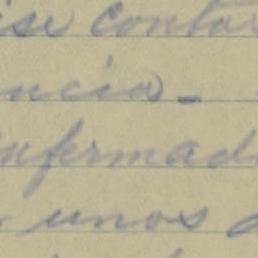 ise contar
ncia -
nfermad
unos